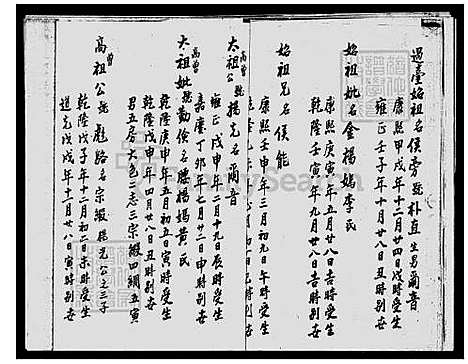 過臺始祖名侯旁號朴直生男爾音
康熙甲戌年十二月廿四日戌時受生
雍正壬子年十月廿八日丑時別世
始祖妣名金楊媽李氏
康熙庚寅年五月廿八日吉時受生
乾隆壬寅年九月廿八日吉時別世
始祖兄名侯能
康熙壬申年三月初九日午時受生
高曾
太祖公號揚光名爾音
雍正戊申年二月十九日辰時受生
嘉慶丁卯年七月廿二日申時別世
高曾
太祖妣號勤儉名腰楊媽黃氏
乾隆庚申年五月初五日寅時受生
乾隆戊申年四月廿八日丑時別世
男五房大色二志三宗綴四綢五寅
曾
高祖公號名宗綴揚光公之三子
乾隆戊子年十二月初二日未時受生
道光戊戌年十二月廿八日寅時別世
FamilySearch